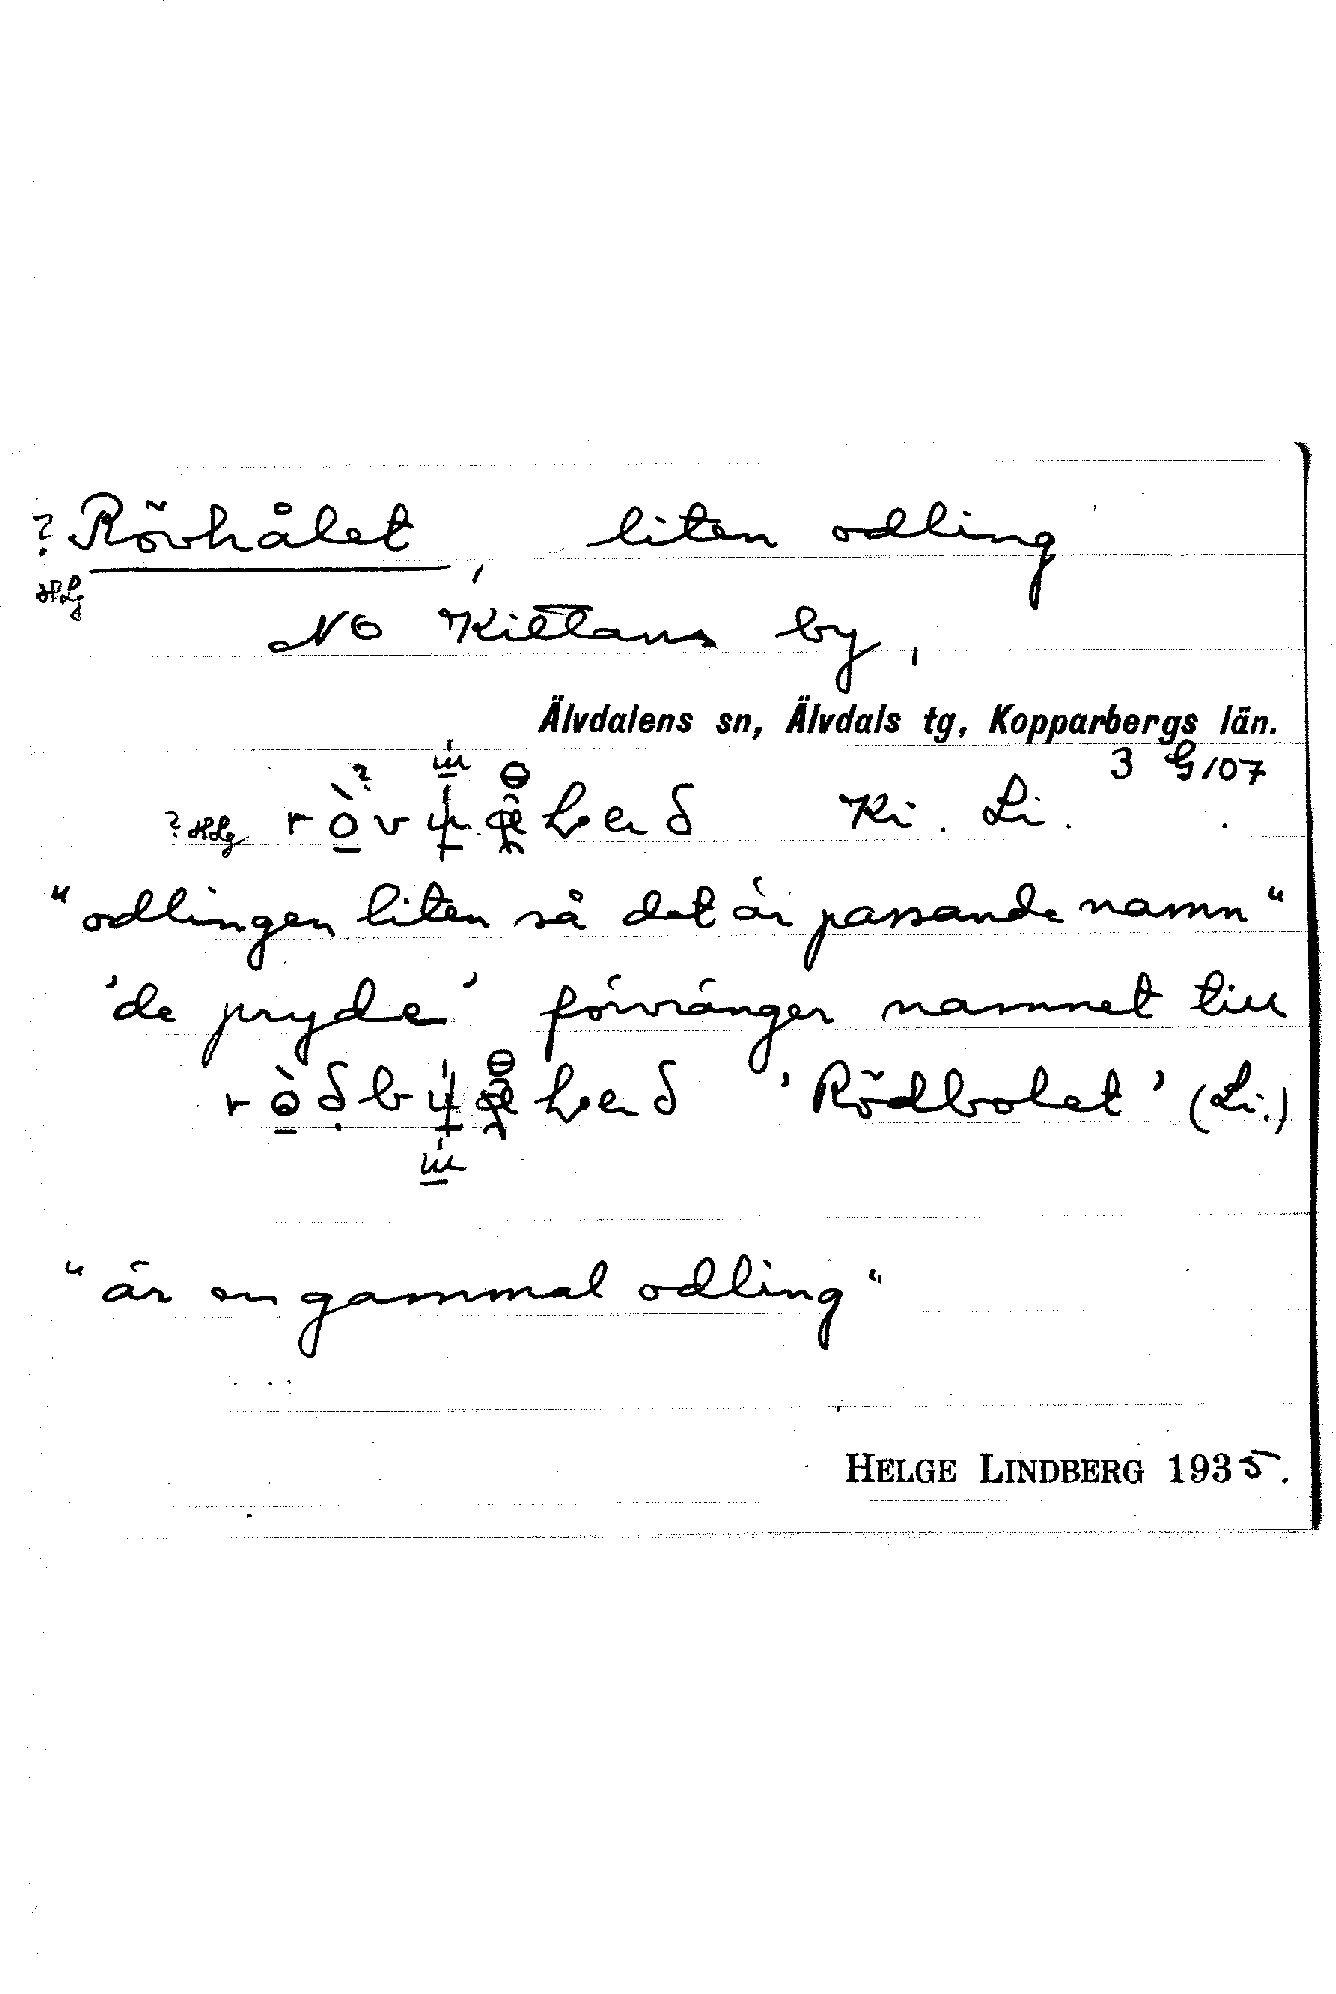 ? Rövhålet, liten odling
HLg
NO Kittans by,
Älvdalens sn, Älvdals tg, Kopparbergs län.
3 G107
? HLg Ki. Li.
"odlingen liten så det är passande namn"
'de pryde' förvränger namnet till
'Rödbolet' (Li.)
"är en gammal odling"
HELGE LINDBERG 1935.